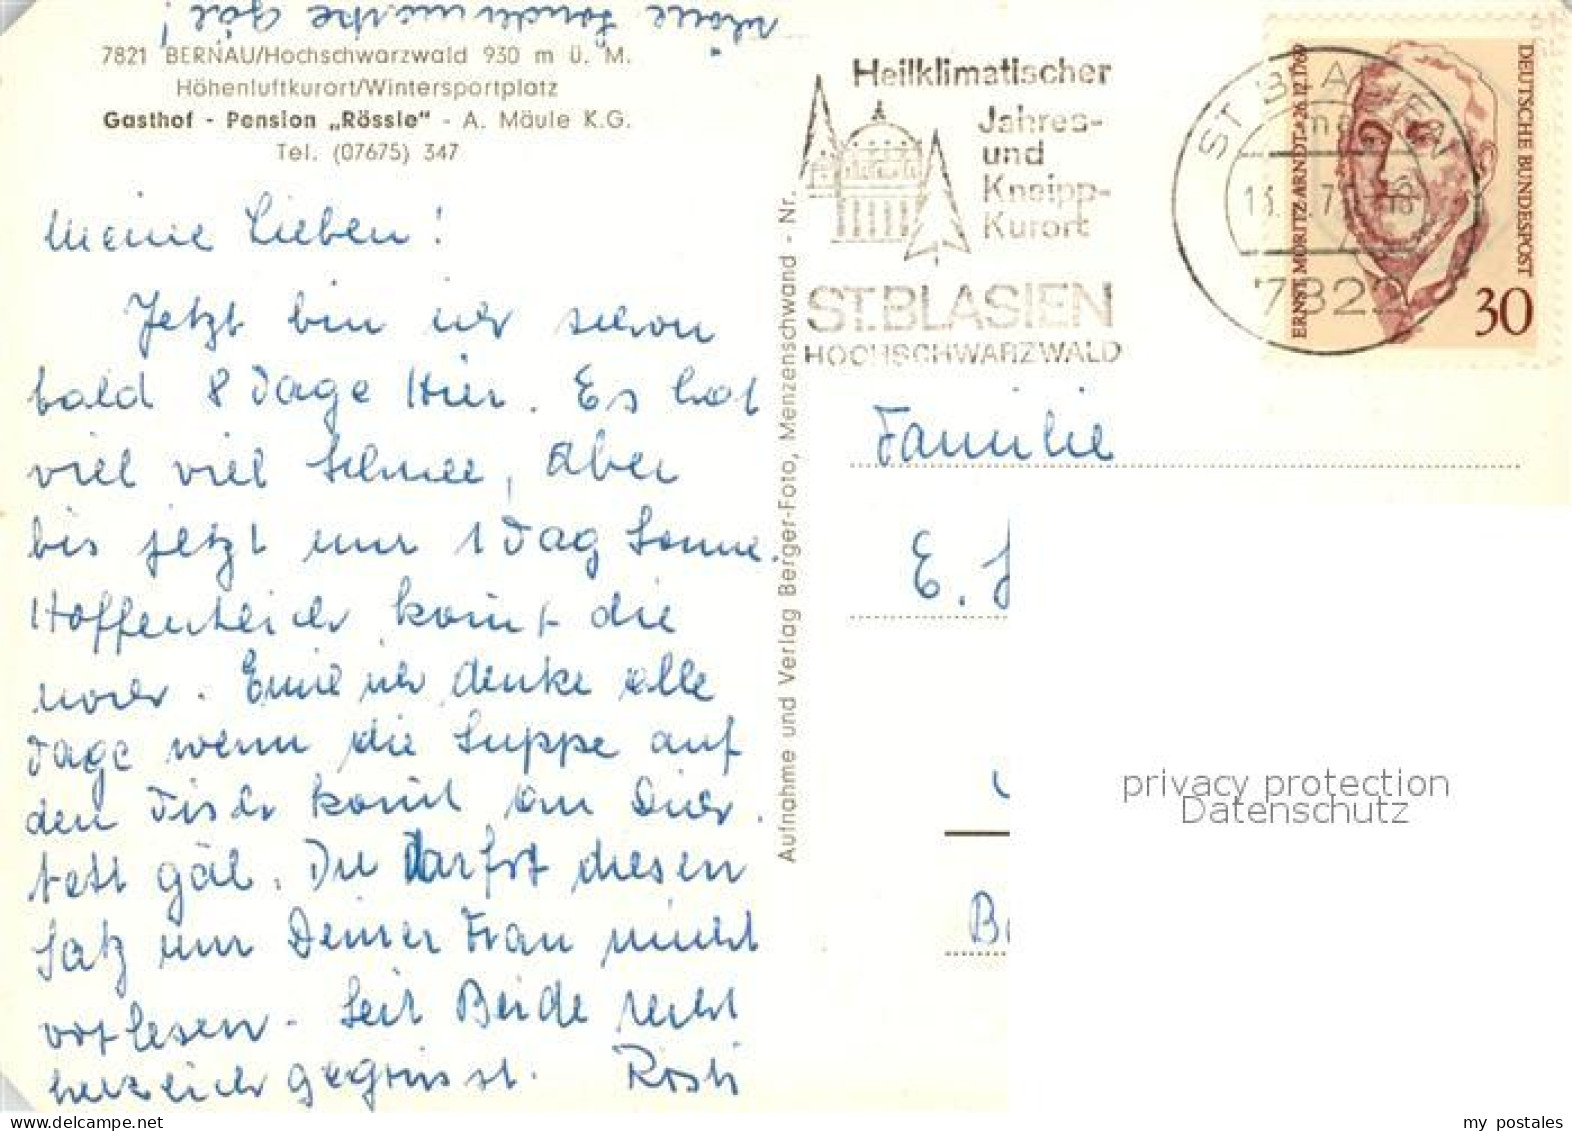 schöne Sondermarke gäl!
7821 BERNAU/Hochschwarzwald 930 m ü. M.
Höhenluftkurort/Wintersportplatz
Gasthof - Pension „Rössle" - A. Mäule K.G.
Tel. (07675) 347
Meine Lieben!
Jetzt bin ich schon
bald 8 Tage Hier. Es hat
viel viel Schnee, Aber
bis jetzt nur 1 Tag Sonne.
Hoffentlich komt die
noch. Emil ich denke alle
Tage wenn die Suppe auf
den Tisch komt an Dich.
gäl. Du Darfst diesen
Satz nur Deiner Frau nicht
vorlesen. Seit Beide recht
herzlich gegrüsst. Rösli
Aufnahme und Verlag Berger-Foto, Menzenschwand - Nr.
Heilklimatischer
Jahres-
und
Kneipp-
Kurort
ST.BLASIEN
HOCHSCHWARZWALD
ST BLASIEN
7822
ERNST MORITZ ARNDT * 26.12.1769
DEUTSCHE BUNDESPOST
30
Familie
E.
privacy protection
Datenschutz
my postales
www.delcampe.net